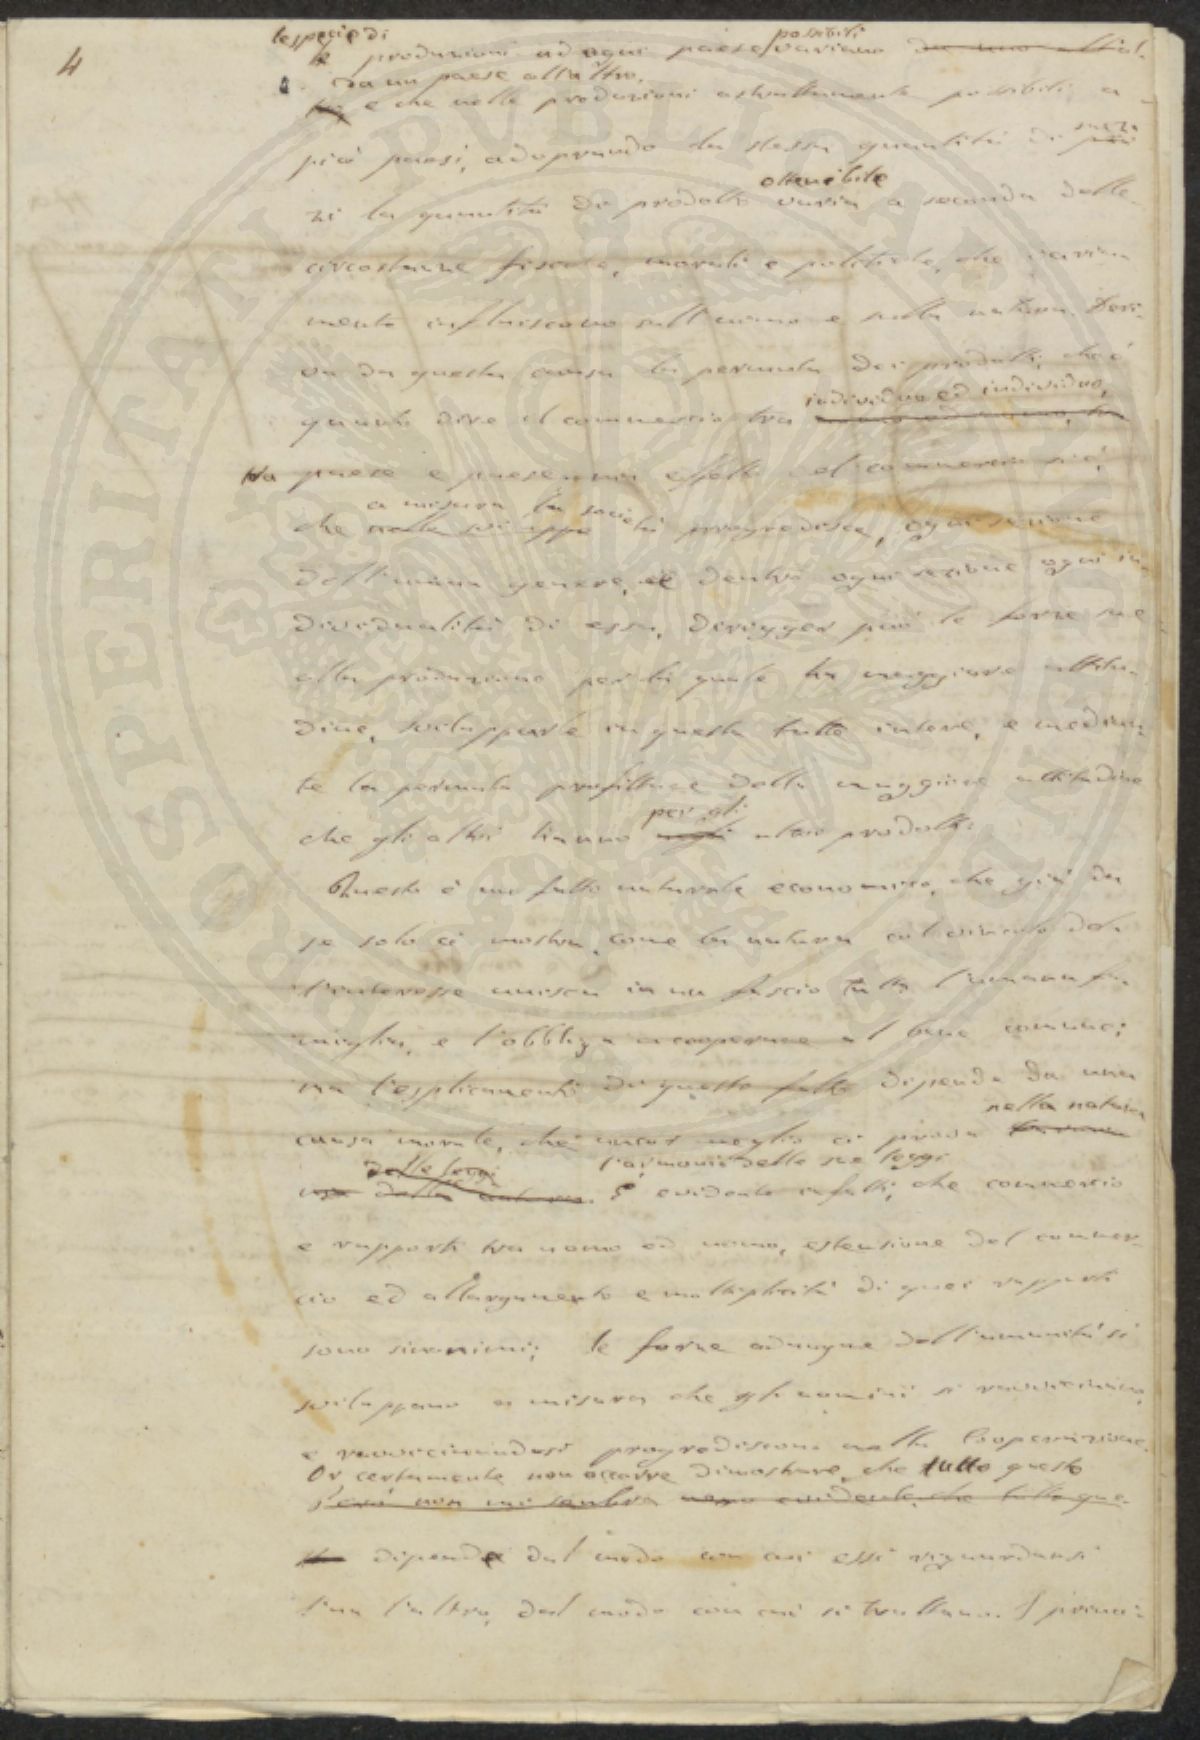 4
le specie di possibili
le produzioni ad ogni paese variano da uno all'al-
da un paese all'altro.
tro e che nelle produzioni astrattamente possibili a
più paesi, adoprando la stessa quantità di
ottenibile
zi la quantità di prodotto varia a seconda delle
circostanze fisiche, morali e politiche, che varia-
mente influiscono sull'uomo e sulla natura. Deri-
va da questa causa la permuta dei prodotti, cioè
individuo ed individuo,
quanto dire il commercio tra
tra paese e paese effetti del commercio
a misura la società
che nello sviluppo progredisce, ogni sezione
dell'umano genere, e dentro ogni sezione ogni in-
dividualità di essa, diriger può le forze sue
alla produzione per la quale ha maggiore attitu-
dine, svilupparle in questa tutte intere, e median-
te la permuta profittare della maggiore attitudine
per gli
che gli altri hanno negli altri prodotti.
Questo è un fatto naturale economico, che già da
se solo ci mostra, come la natura col vincolo del-
l'interesse unisca in un fascio tutta l'umana fa-
miglia, e l'obbliga a cooperare al bene comune;
ma l'esplicamento di questo fatto dipende da una
nella natura
causa morale, che ancor meglio ci prova
l'armonia delle sue leggi
delle leggi
della natura. È evidente infatti, che commercio
e rapporti tra uomo ed uomo, estensione del commer-
cio ed allargamento e moltiplicità di quei rapporti
sono sinonimi; le forze adunque dell'umanità si
sviluppano a misura che gli uomini si ravvicinano,
e ravvicinandosi progrediscono nella cooperazione.
Or certamente non occorre dimostrare, che tutto questo
non mi sembra meno evidente, che tutto que-
sto dipende dal modo con cui essi riguardansi
l'un l'altro, dal modo con cui si trattano. I princi-
PROSPERITATI PVBLICAE